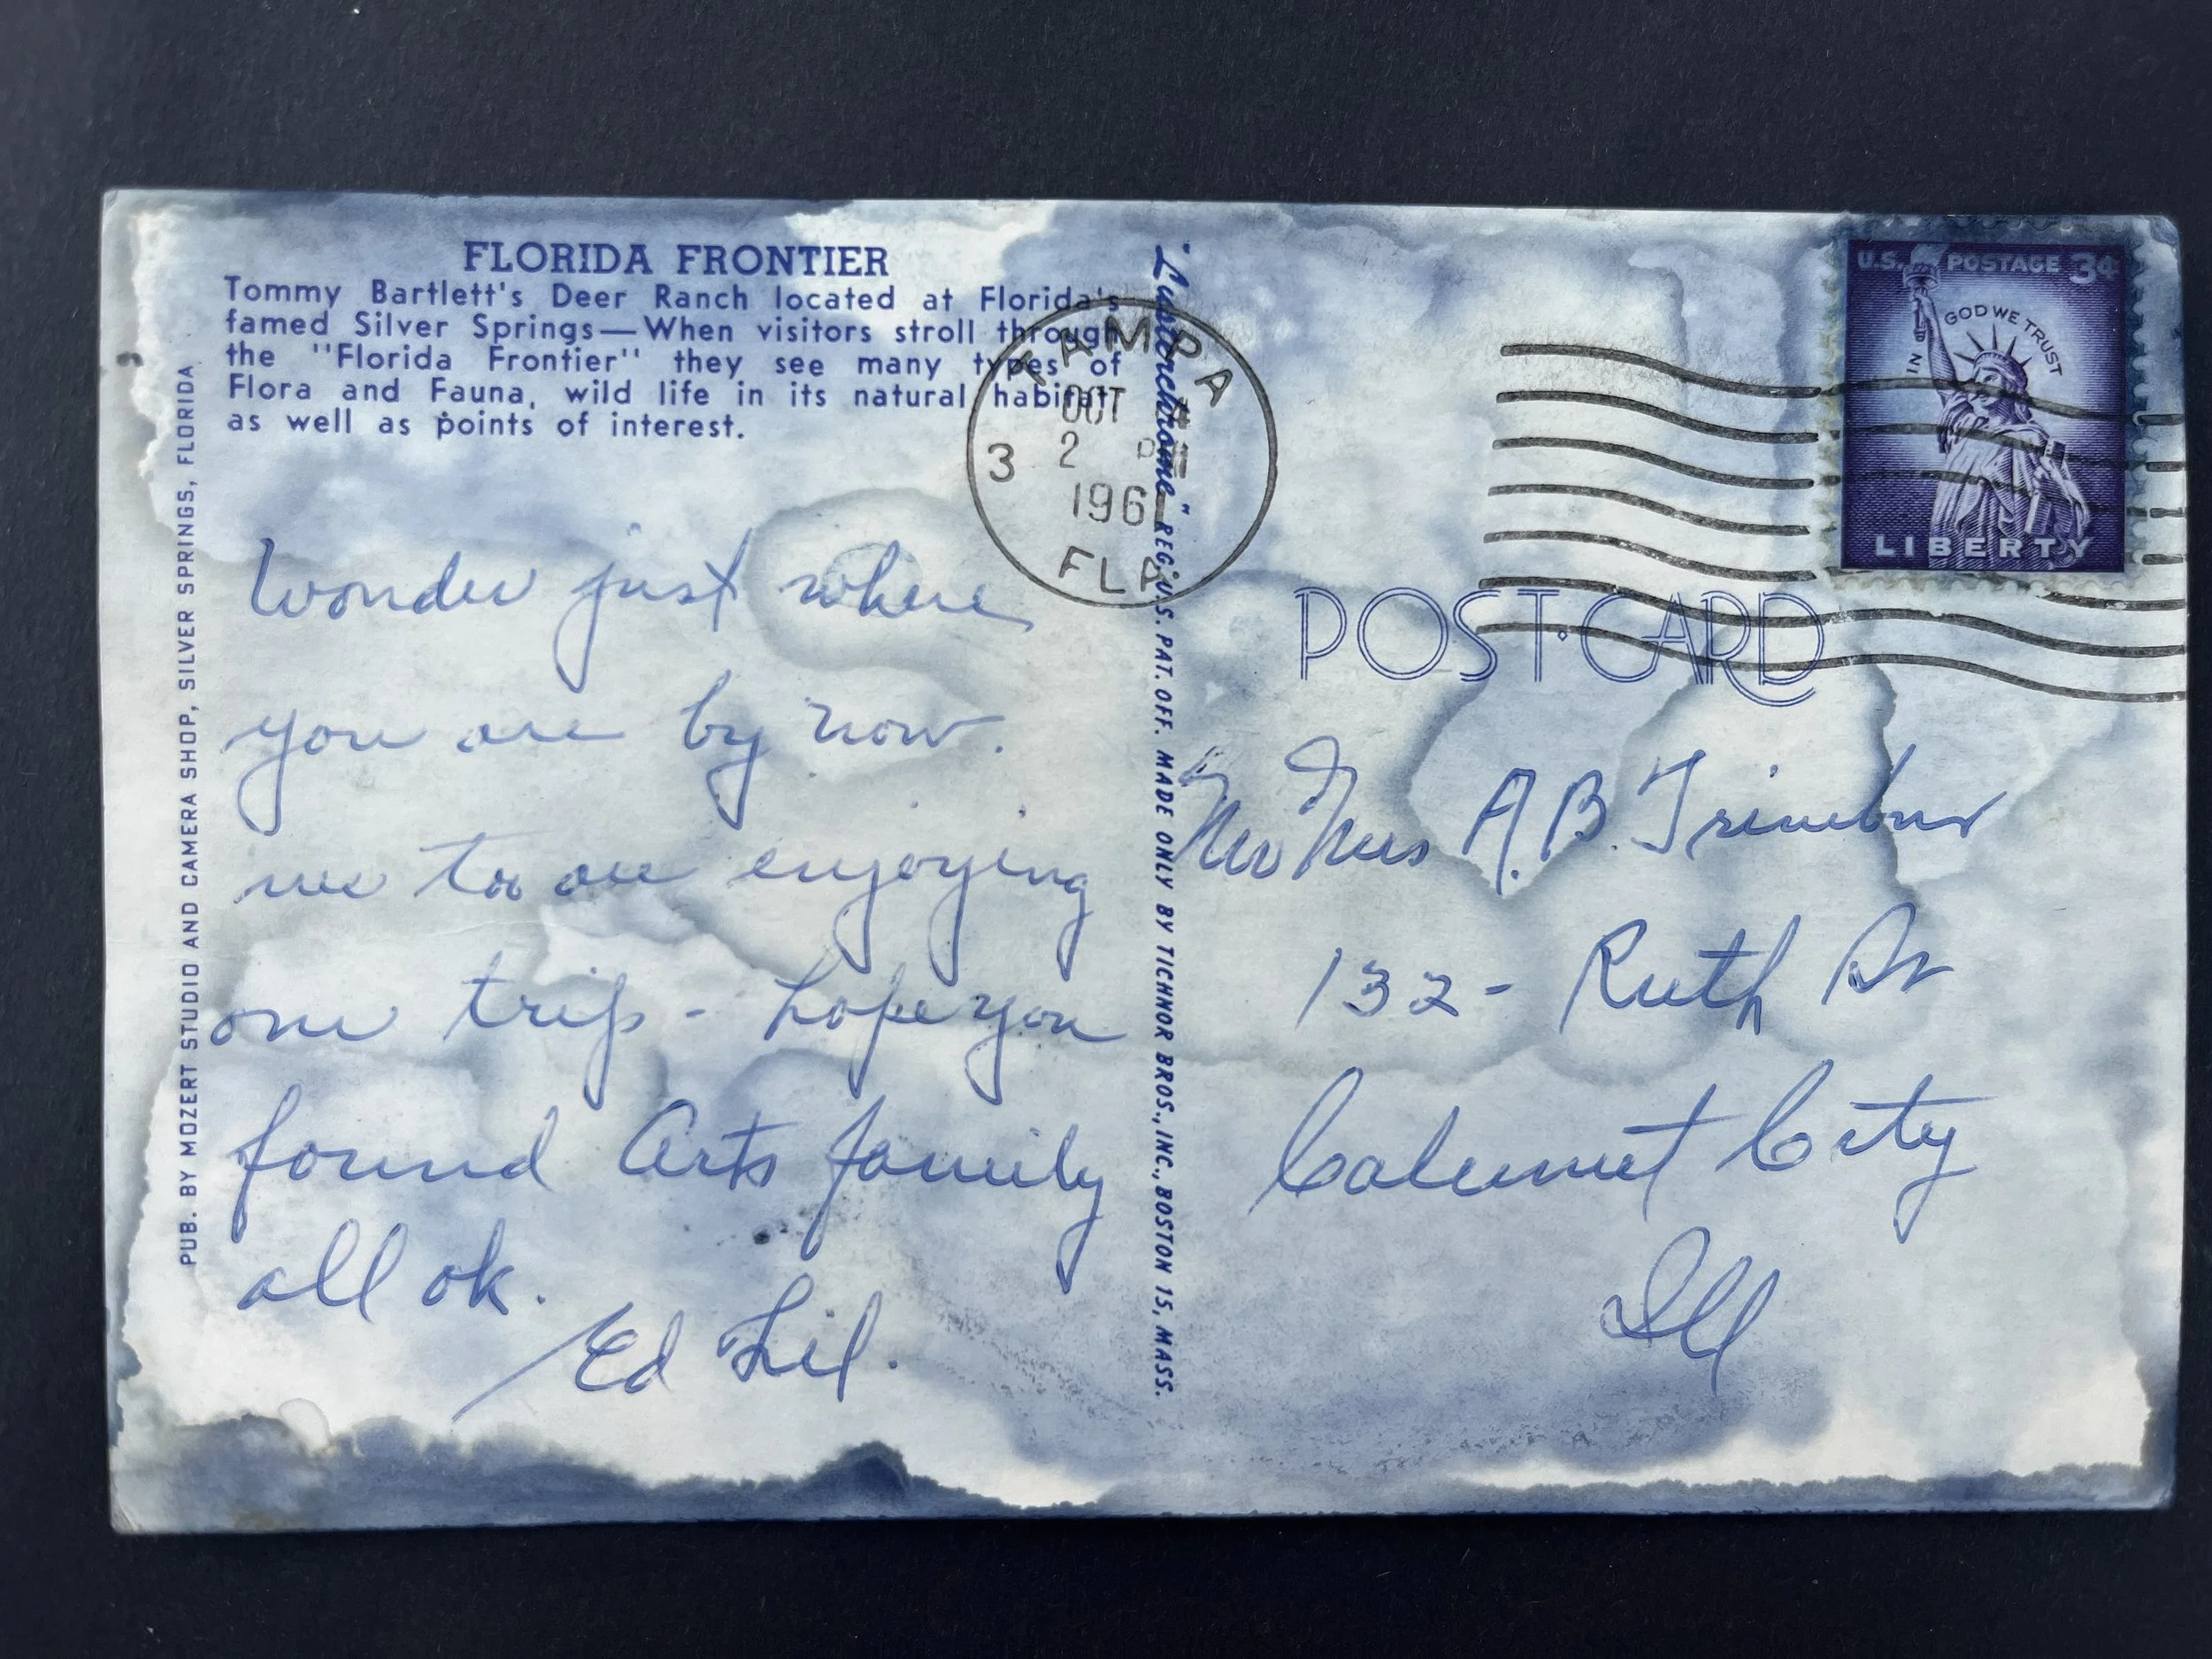 FLORIDA FRONTIER
Tommy Bartlett's Deer Ranch located at Florida's
famed Silver Springs—When visitors stroll through
the "Florida Frontier" they see many types of
Flora and Fauna, wild life in its natural habitat,
as well as points of interest.
PUB. BY MOZERT STUDIO AND CAMERA SHOP, SILVER SPRINGS, FLORIDA
Wonder just where
you are by now.
we too are enjoying
our trip - hope you
found Arts family
all ok.
Ed Lil.
"Lusterchrome" REG. U.S. PAT. OFF. MADE ONLY BY TICHNOR BROS., INC., BOSTON 15, MASS.
TAMPA
OCT
3 2 PM
196
FLA.
U.S. POSTAGE 3¢
IN GOD WE TRUST
LIBERTY
POST CARD
Mr Mrs A.B.
132 - Ruth Dr
Calumet City
Ill